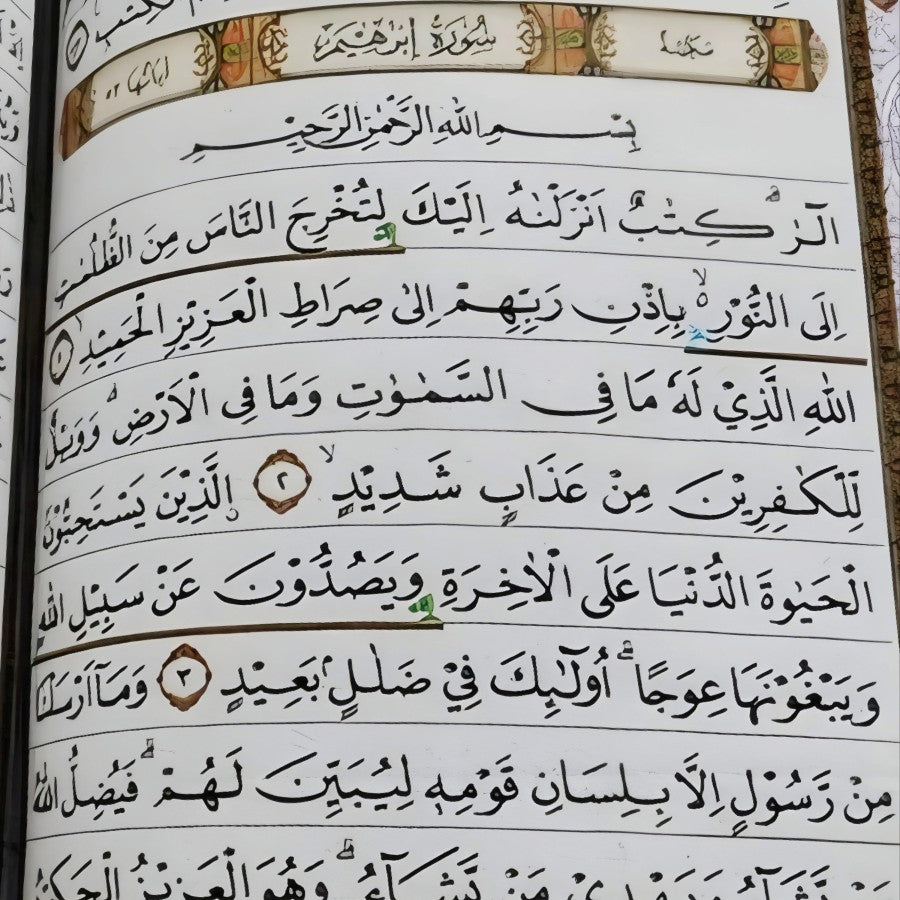 الكتب
مكية سُوْرَةُ اِبْرٰهِيْمَ اياتها ٥٢
بِسْمِ اللّٰهِ الرَّحْمٰنِ الرَّحِيْمِ
الٓرٰ ۗ كِتٰبٌ اَنْزَلْنٰهُ اِلَيْكَ لِتُخْرِجَ النَّاسَ مِنَ الظُّلُمٰتِ
اِلَى النُّوْرِ ەۙ بِاِذْنِ رَبِّهِمْ اِلٰى صِرَاطِ الْعَزِيْزِ الْحَمِيْدِ ١
اللّٰهِ الَّذِيْ لَهٗ مَا فِى السَّمٰوٰتِ وَمَا فِى الْاَرْضِ ۗ وَوَيْلٌ
لِّلْكٰفِرِيْنَ مِنْ عَذَابٍ شَدِيْدٍ ۙ ٢ اۨلَّذِيْنَ يَسْتَحِبُّوْنَ
الْحَيٰوةَ الدُّنْيَا عَلَى الْاٰخِرَةِ وَيَصُدُّوْنَ عَنْ سَبِيْلِ اللّٰهِ
وَيَبْغُوْنَهَا عِوَجًا ۗ اُولٰٓىِٕكَ فِيْ ضَلٰلٍۢ بَعِيْدٍ ٣ وَمَآ اَرْسَلْنَا
مِنْ رَّسُوْلٍ اِلَّا بِلِسَانِ قَوْمِهٖ لِيُبَيِّنَ لَهُمْ ۗ فَيُضِلُّ اللّٰهُ
مَنْ يَّشَاۤءُ وَيَهْدِيْ مَنْ يَّشَاۤءُ ۗ وَهُوَ الْعَزِيْزُ الْحَكِيْمُ